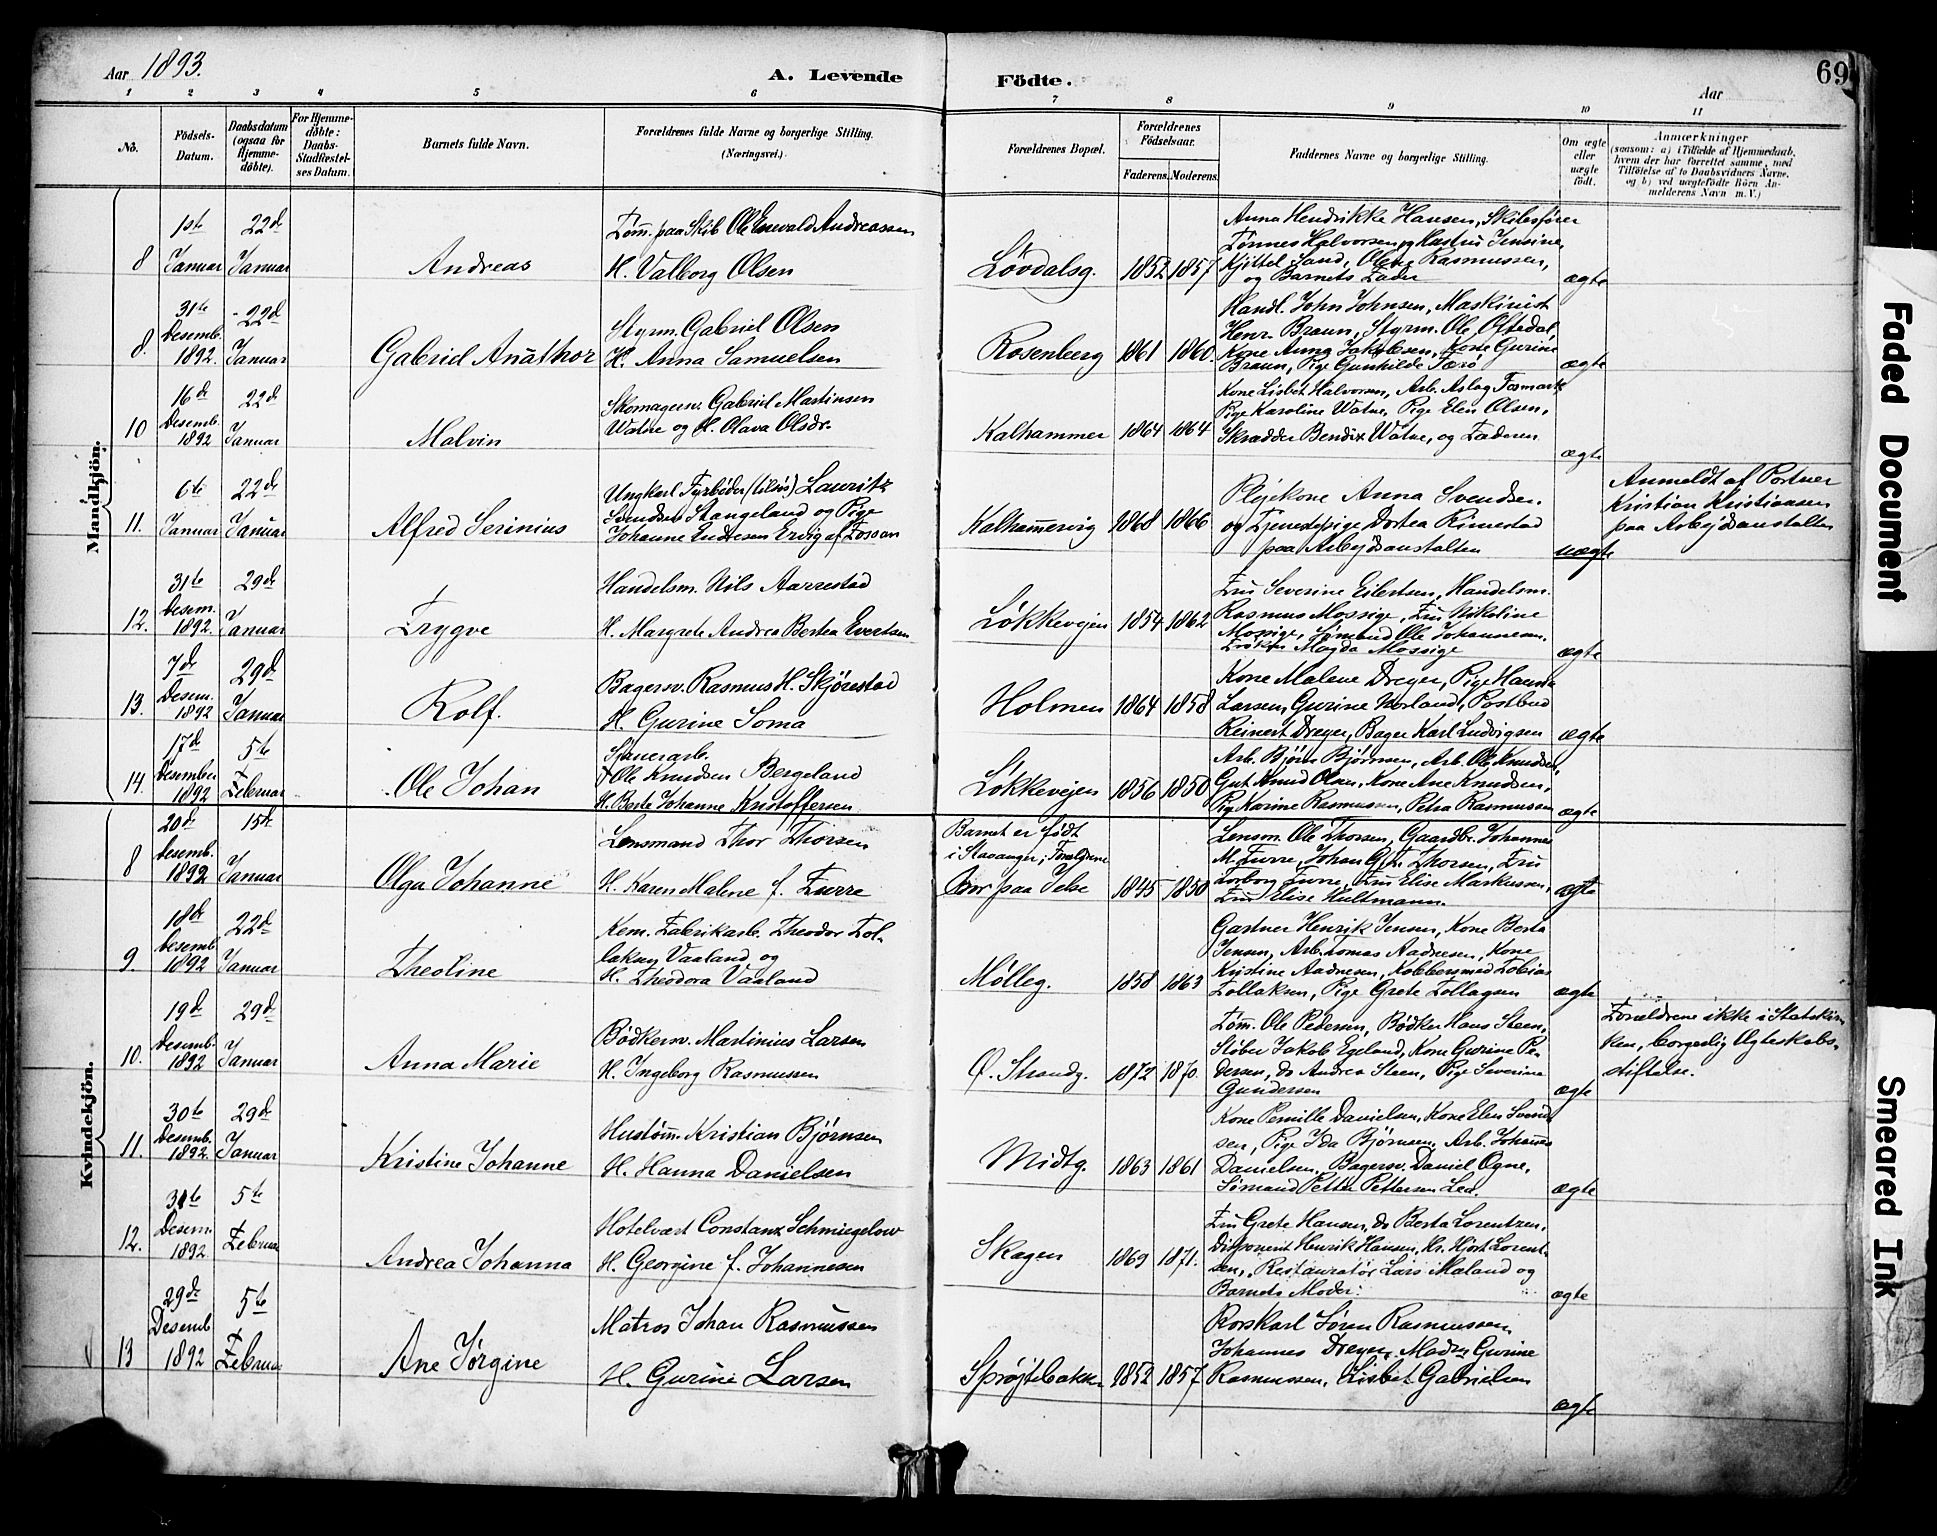 Aar 1893.
A. Levende Födte.
69
Aar
1 2 3 4 5 6 7 8 9 10 11
No.
Födsels-Datum.
Daabsdatum (ogsaa for Hjemmedöbte).
For Hjemmedöbte: Daabs-Stadfæstelses Datum.
Barnets fulde Navn.
Forældrenes fulde Navne og borgerlige Stilling. (Næringsvei.)
Forældrenes Bopæl.
Forældrenes Födselsaar.
Faderens. Moderens.
Faddernes Navne og borgerlige Stilling.
Om ægte eller uægte födt.
Anmærkninger
(saasom: a) i Tilfælde af Hjemmedaab,
hvem der har forrettet samme, med
Tilföielse af to Daabsvidners Navne,
og b) ved uægtefödte Börn Anmelderens Navn m. V.)
Mandkjön.
8 1ste Januar 22de Januar
Andreas
Tømm. paa Skib Ole Enevald Andreassen
H. Valborg Olsen
Løvdalsg. 1852 1857
Anna Hendrikke Hansen, Skibsfører
Tønnes Halvorsen og Hustru Jensine,
Kjittel Sand, Olene Rasmussen,
og Barnets Fader
ægte
8. 31te Desemb. 1892. 22de Januar
Gabriel Anathor
Styrm. Gabriel Olsen
H. Anna Samuelsen
Rosenberg 1861 1860.
Handl. John Johnsen, Maskinist
Henr. Braun, Styrm. Ole Oftedal
Kone Anna Jakobsen, Kone Gurine
Braun, Pige Gunhilde Færø
ægte
10 16de Desemb. 1892 22de Januar
Malvin
Skomagersv. Gabriel Martinsen
Watne og H. Olava Olsdr.
Kalhammer 1864 1864
Kone Lisbet Halvorsen, Arb. Aslag Fosmark,
Pige Karoline Watne, Pige Elen Olsen,
Skrædder Bendix Watne, og Faderen
ægte
11. 6te Januar 22de Januar
Alfred Serinius
Ungkarl Fyrbøder (tilsøs) Lauritz
Svendsen Stangeland og Pige
Johanne Endresen Ervig af Fossan
Kalhammervig 1868 1866
Plejekone Anna Svendsen.
og Tjenestepige Dortea Rimestad
paa Arbejdsanstalten
uægte
Anmeldt af Portner
Kristian Kristiansen
paa Arbejdsanstalten
12. 31te Desem. 1892. 29de Januar
Trygve
Handelsm. Nils Aarrestad
H. Margrete Andrea Bertea Evertsen
Løkkevejen 1854 1862
Fru Severine Eilertsen, Handelsm.
Rasmus Mossige, Fru Nikoline
Mossige, Sømand Ole Johannesen.
Frøken Magda Mossige
ægte
13. 7de Desem. 1892 29de Januar
Rolf.
Bagersv. Rasmus H. Skjørestad
H. Gurine Soma
Holmen 1864 1858
Kone Malene Dreyer, Pige Hansa
Larsen, Gurine Norland, Postbud
Reinert Dreyer, Bager Karl Ludvigsen
ægte
14. 17de Desember 1892 5te Februar
Ole Johan
Sjauerarb.
Ole Knudsen Bergeland
H. Berte Johanne Kristoffersen
Løkkevejen 1856 1850
Arb. Bjørn Bjørnsen, Arb. Ole Knudsen,
Gut Knud Olsen, Kone Ane Knudsen,
Pige Karine Rasmussen, Petra Rasmussen
ægte
Kvindekjön.
8 20de Desemb. 1892 15de Januar
Olga Johanne
Lensmand Thor Thorsen
H. Karen Malene f. Furre
Barnet er født
i Stavanger; Forældrene
Bor paa Jelse 1845 1850
Lensm. Ole Thorsen, Gaardbr. Johannes
M. Furre, Johan G. Thorsen, Fru
Torborg Furre, Fru Elise Markussen,
Fru Elise Hultmann.
ægte
9. 18de Desemb. 1892 22de Januar
Theoline
Kem. Fabrikarb. Theodor Tol-
laksen Vaaland og
H. Theodora Vaaland
Mølleg. 1858 1863
Gartner Henrik Jensen, Kone Berta
Jensen, Arb. Tomas Aadnesen, Kone
Kristine Aadnesen, Kobbersmed Tobias
Tollaksen, Pige Grete Tollagsen
ægte
10. 19de Desemb. 1892 29de Januar
Anna Marie
Bødkersv. Martinius Larsen
H. Ingeborg Rasmussen
Ø. Strandg. 1872 1870.
Tømm. Ole Pedersen, Bødker Hans Steen,
Støber Jakob Egeland, Kone Gurine Pe-
dersen, do Andrea Steen, Pige Severine
Gundersen
ægte
Forældrene ikke i Statskir-
ken, borgerlig Ægteskabs-
stiftelse.
11. 30te Desemb. 1892. 29de Januar
Kristine Johanne
Hustømm. Kristian Bjørnsen
H. Hanna Danielsen
Midtg. 1863 1861
Kone Pernille Danielsen, Kone Elen Svend-
sen, Pige Ida Bjørnsen, Arb. Johannes
Danielsen, Bagersv. Daniel Ogne,
Sømand Petter Pettersen Lea.
ægte
12. 31te Desem. 1892 5te Februar
Andrea Johanna
Hotelvært Constanz Schmiegelow
H. Georgine f. Johannesen
Skagen 1869 1871.
Fru Grete Hansen, do Berta Lorentzen.
Disponent Henrik Hansen, Hr. Hjort Lorent-
sen, Restauratør Lars Maland og
Barnets Moder.
ægte
13 29de Desemb 1892 5te Februar
Ane Jørgine
Matros Johan Rasmussen
H. Gurine Larsen
Sprøjtebakken 1852 1857
Rorskarl Søren Rasmussen,
Johannes Dreyer, Madm Gurine
Rasmussen, Lisbet Gabrielsen
ægte
Faded Document
Smeared Ink